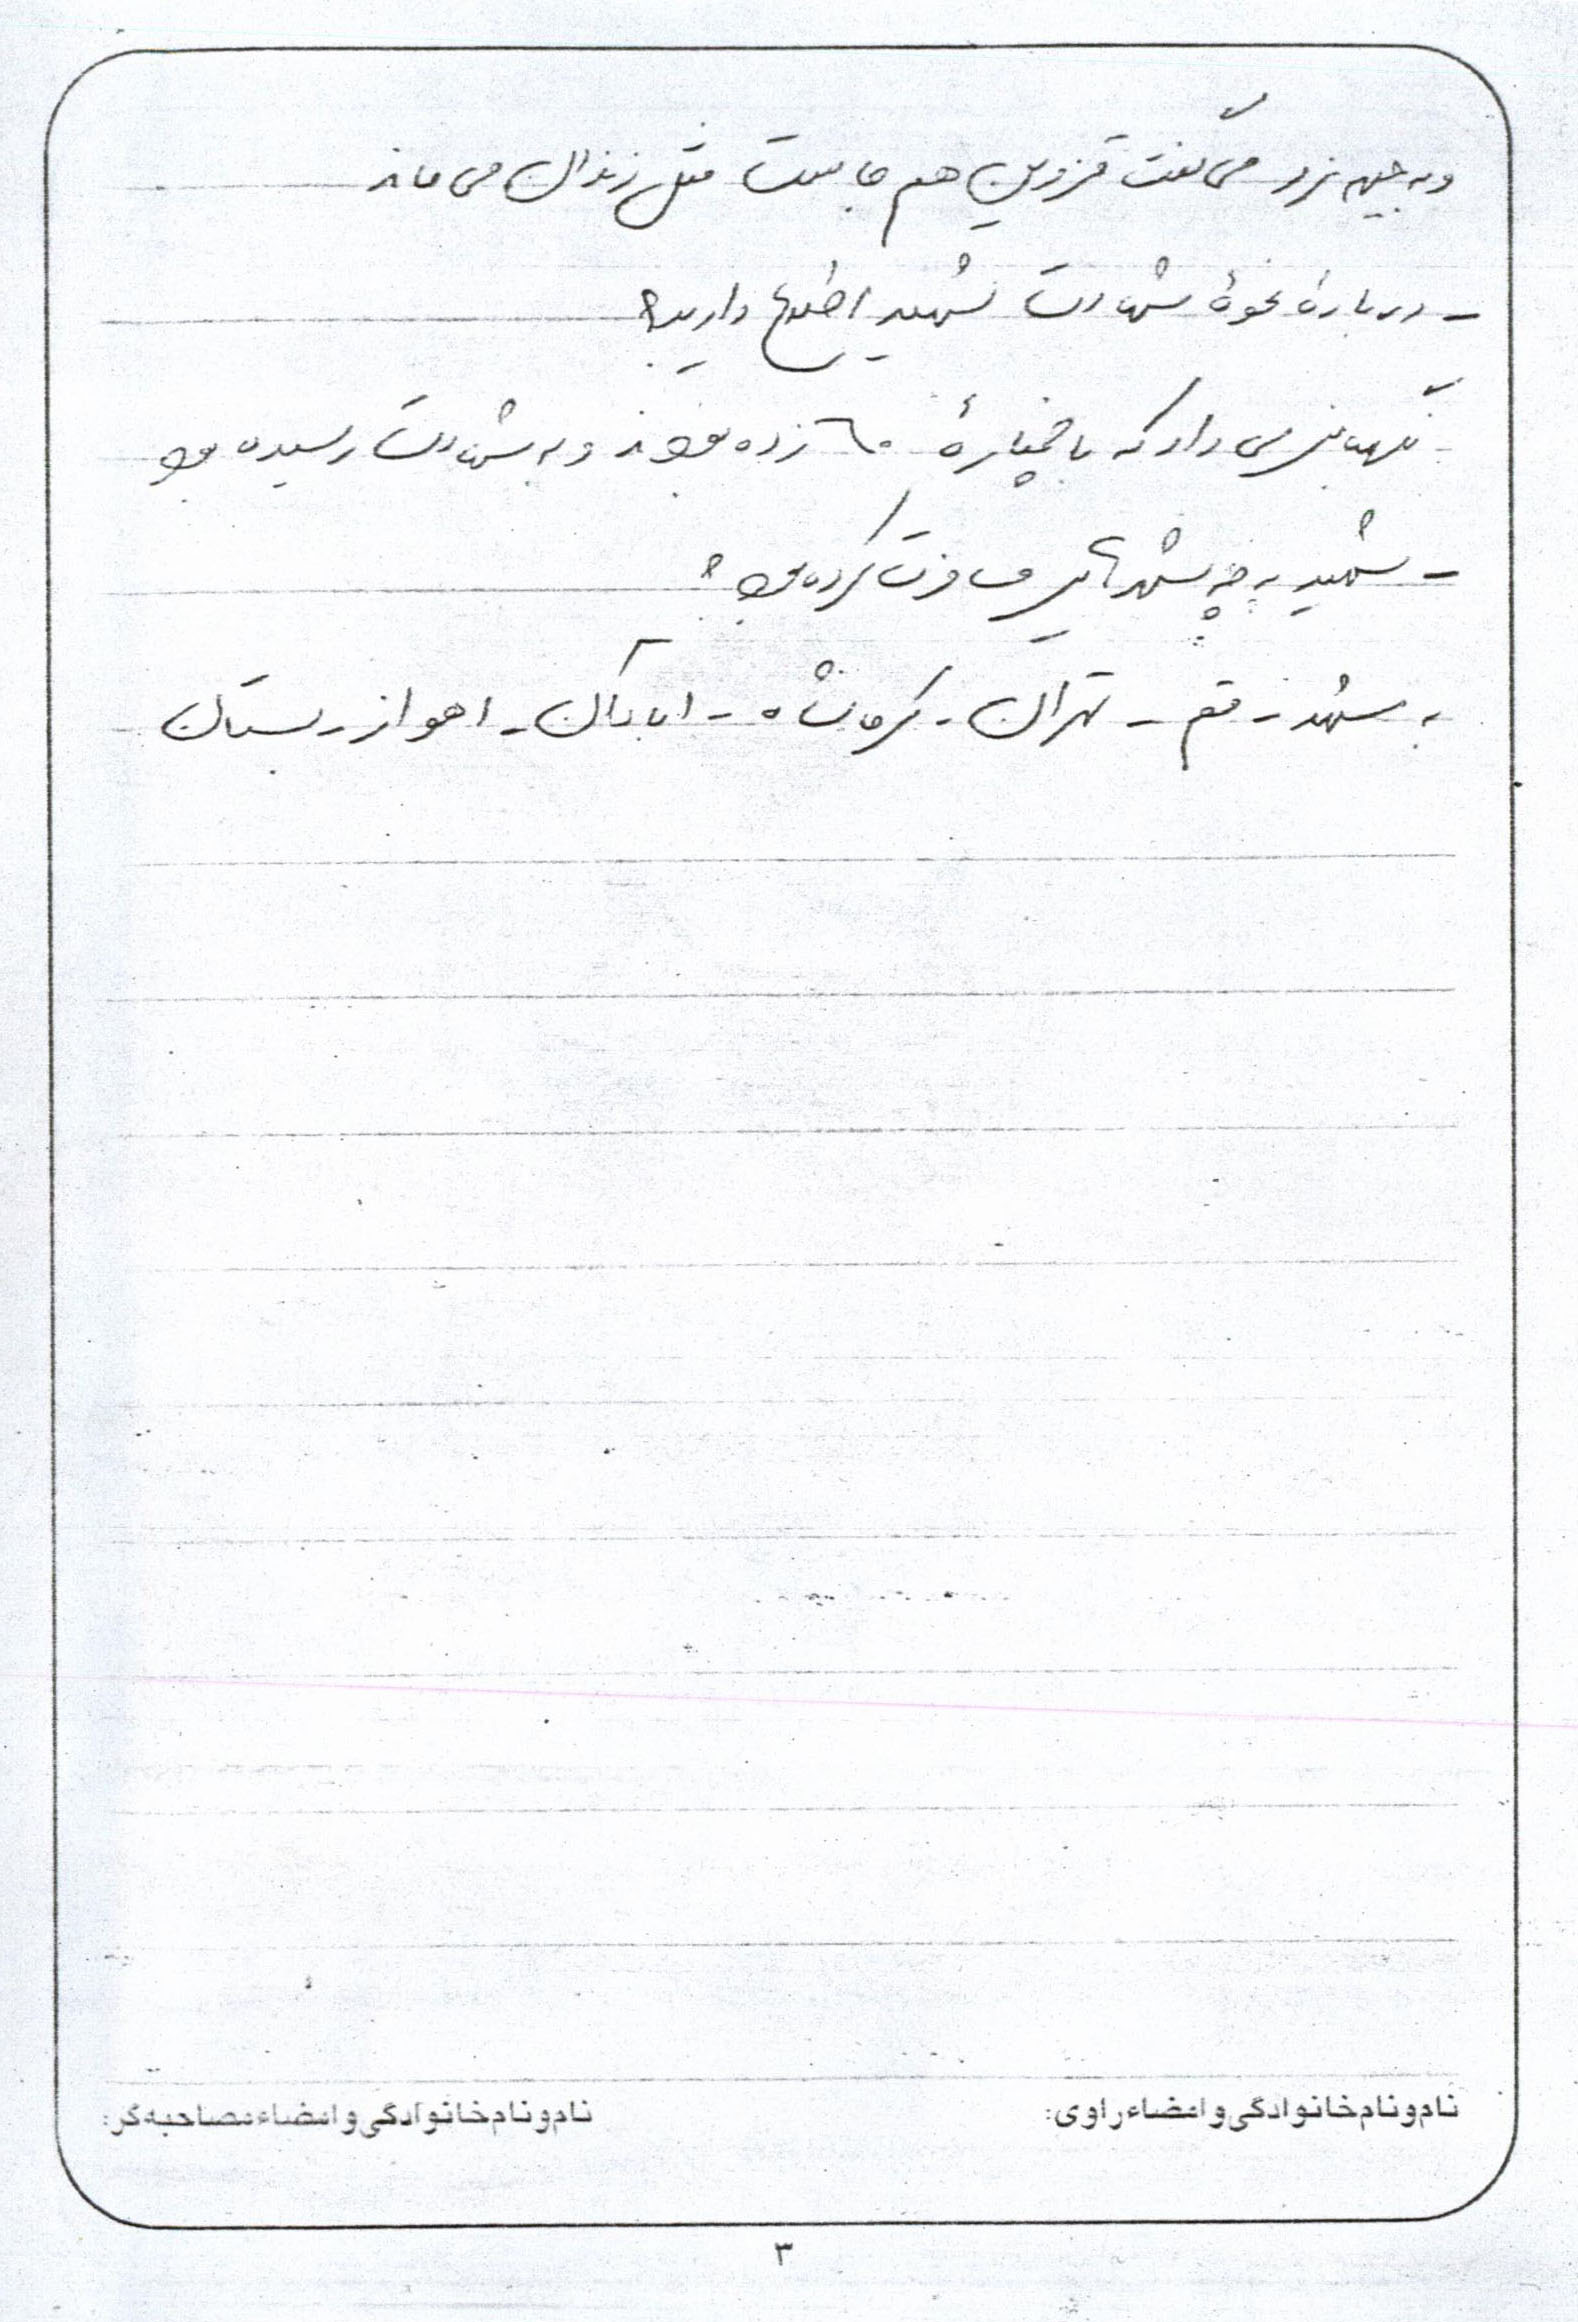 و به جبهه نرود می‌گفت قزوین هم جا نیست مثل زندان می‌ماند
- درباره نحوهٔ شهادت شهید اطلاع دارید؟
نگهبانی می‌داد که با خمپارهٔ ۶۰ زده بودند و به شهادت رسیده بود
- شهید به چه شهرهایی مسافرت کرده بود؟
به مشهد - قم - تهران - کرمانشاه - آبادان - اهواز - بستان
نام و نام خانوادگی و امضاء راوی:
نام و نام خانوادگی و امضاء مصاحبه گر:
۳